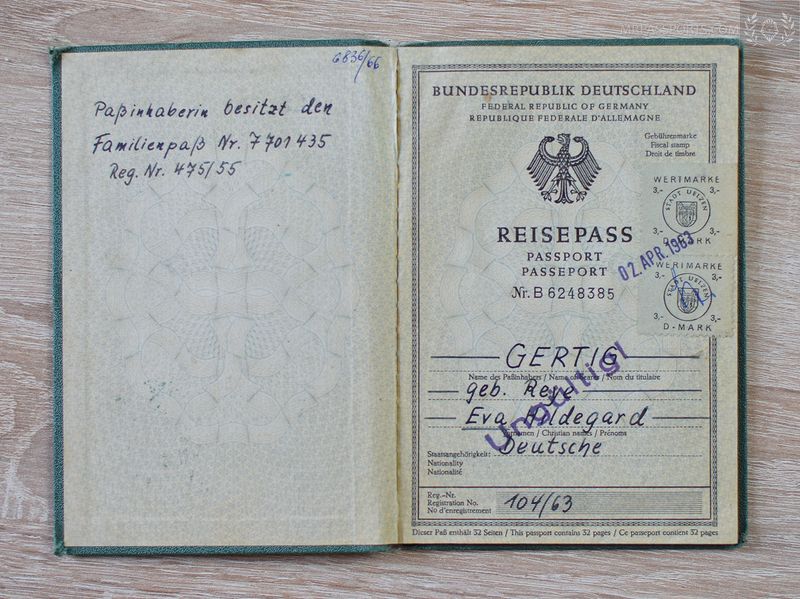 6836/66
Paßinhaberin besitzt den
Familienpaß Nr. 7701435
Reg. Nr. 475/55
BUNDESREPUBLIK DEUTSCHLAND
FEDERAL REPUBLIC OF GERMANY
REPUBLIQUE FEDERALE D'ALLEMAGNE
Gebührenmarke
Fiscal stamp
Droit de timbre
WERTMARKE
3,- 3,-
STADT UELZEN
3,- 3,-
D-MARK
REISEPASS
PASSPORT
PASSEPORT
Nr. B 6248385
02. APR. 1963
WERTMARKE
3,- 3,-
STADT UELZEN
3,- 3,-
D-MARK
GERTIG
Name des Paßinhabers / Name of bearer / Nom du titulaire
geb. Reye
Ungültig!
Eva Hildegard
Vornamen / Christian names / Prénoms
Staatsangehörigkeit: Deutsche
Nationality
Nationalité
Reg.-Nr.
Registration No. 104/63
No d'enregistrement
Dieser Paß enthält 32 Seiten / This passport contains 32 pages / Ce passeport contient 32 pages